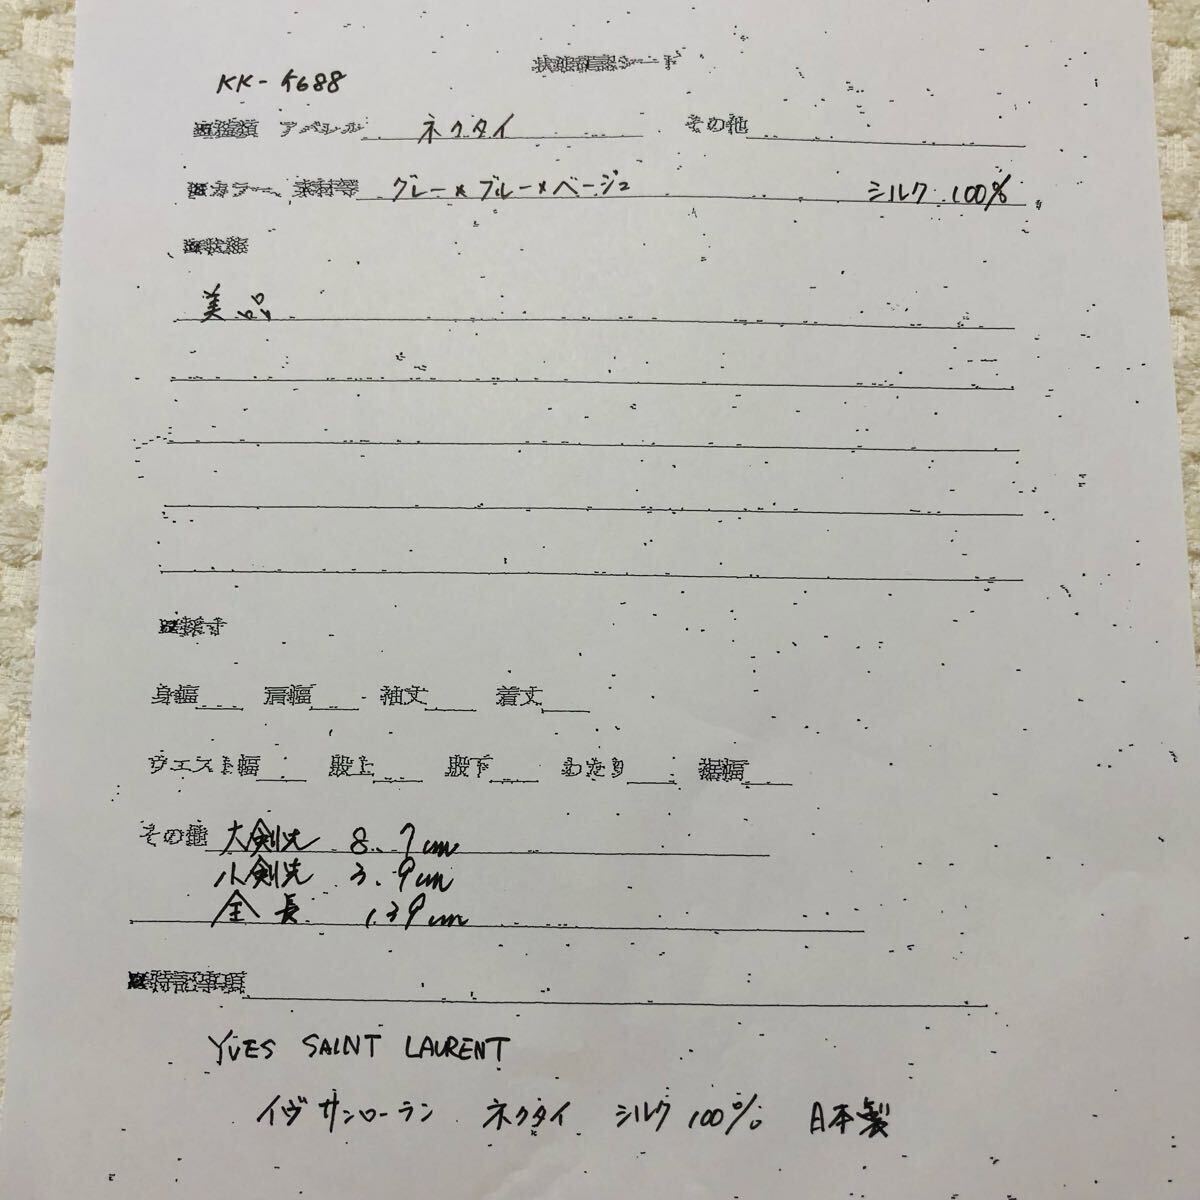 状態確認シート
KK-5688
■種類 アパレル ネクタイ その他
■カラー、素材等 グレー×ブルー×ベージュ シルク 100%
■状態
美品
■採寸
身幅 肩幅 袖丈 着丈
ウエスト幅 股上 股下 わたり 裾幅
その他 大剣先 8.7cm
小剣先 3.9cm
全長 139cm
■特記事項
YVES SAINT LAURENT
イヴサンローラン ネクタイ シルク 100% 日本製